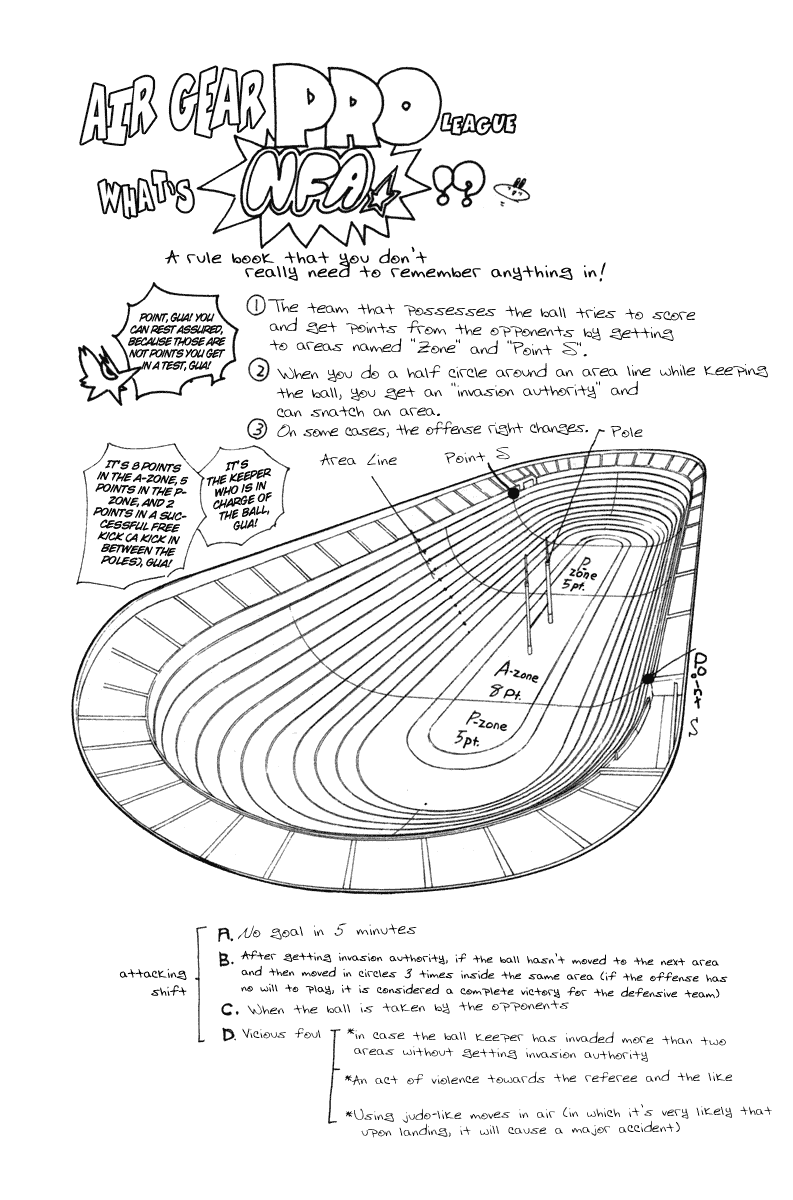 AIR GEAR PRO LEAGUE
WHAT'S NFA ??
A rule book that you don't
really need to remember anything in!
POINT, GUA! YOU
CAN REST ASSURED,
BECAUSE THOSE ARE
NOT POINTS YOU GET
IN A TEST, GUA!
① The team that possesses the ball tries to score
and get points from the opponents by getting
to areas named "Zone" and "Point S".
② When you do a half circle around an area line while keeping
the ball, you get an "invasion authority" and
can snatch an area.
③ On some cases, the offense right changes.
IT'S 8 POINTS
IN THE A-ZONE, 5
POINTS IN THE P-
ZONE, AND 2
POINTS IN A SUC-
CESSFUL FREE
KICK (A KICK IN
BETWEEN THE
POLES), GUA!
IT'S
THE KEEPER
WHO IS IN
CHARGE OF
THE BALL,
GUA!
Area Line
Point S
Pole
P
zone
5pt.
A-zone
8 Pt.
P-zone
5pt.
Point S
attacking
shift
A. No goal in 5 minutes
B. After getting invasion authority, if the ball hasn't moved to the next area
and then moved in circles 3 times inside the same area (if the offense has
no will to play, it is considered a complete victory for the defensive team)
C. When the ball is taken by the opponents
D. Vicious foul
*in case the ball keeper has invaded more than two
areas without getting invasion authority
*An act of violence towards the referee and the like
*Using judo-like moves in air (in which it's very likely that
upon landing, it will cause a major accident)